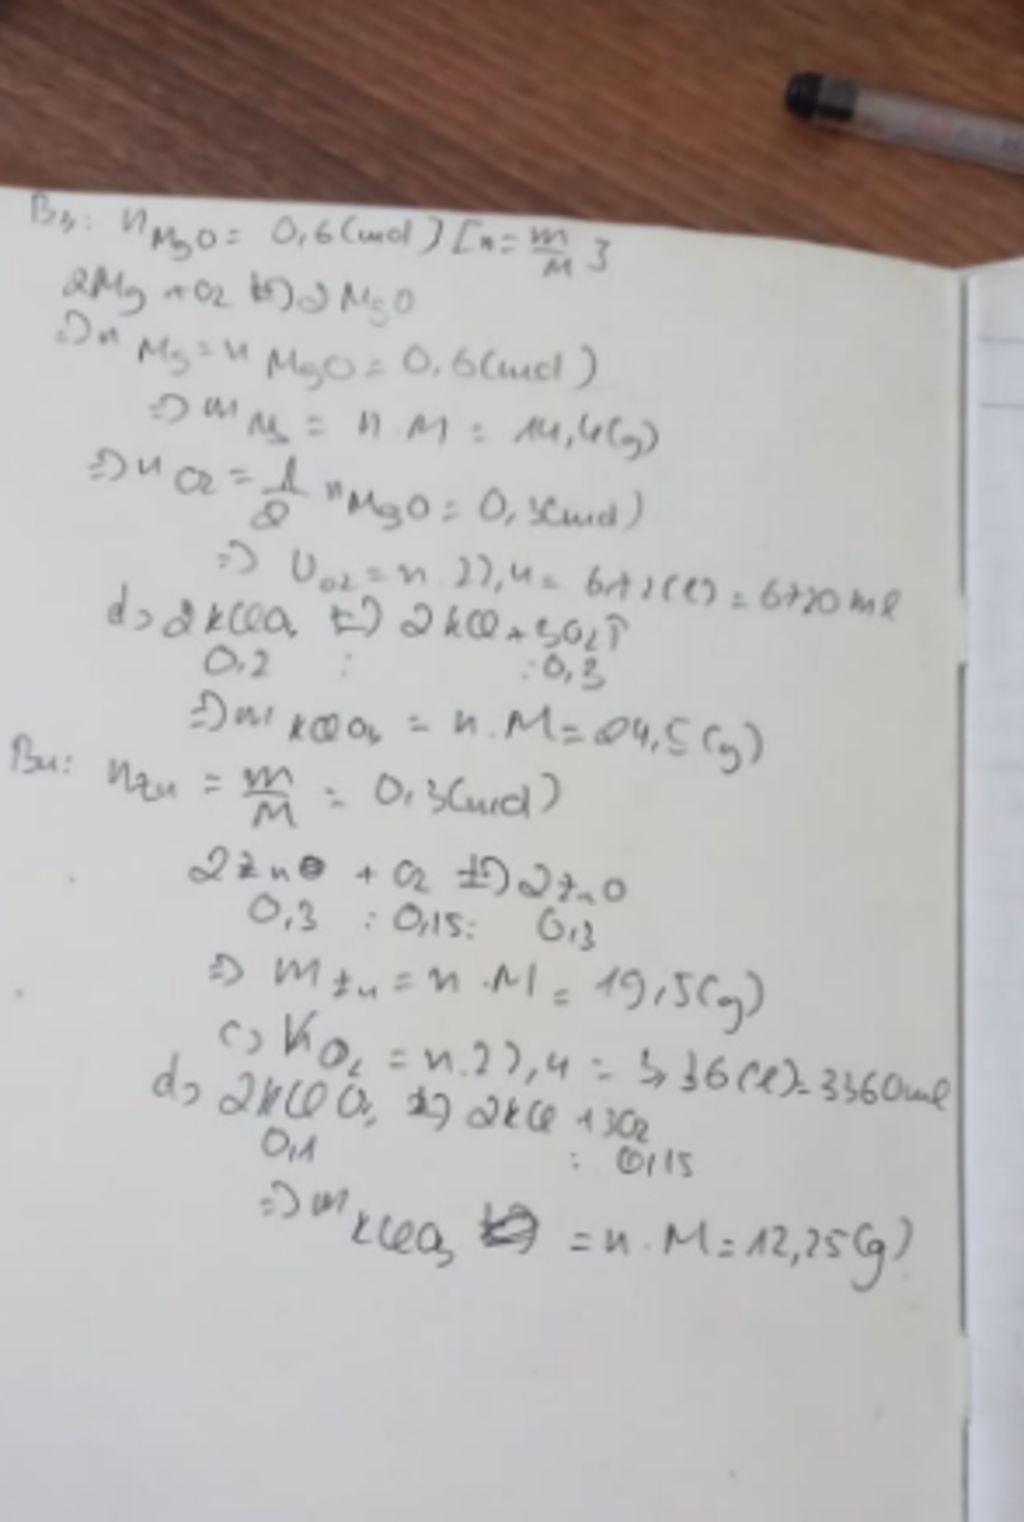 B3: nMgO = 0,6(mol) [n = m/M]
2Mg + O2 t°→ 2MgO
=> nMg = nMgO = 0,6(mol)
=> mMg = n.M = 14,4(g)
=> nO2 = 1/2 nMgO = 0,3(mol)
=> VO2 = n.22,4 = 6,72(l) = 6720ml
d> 2KClO3 t°→ 2KCl + 3O2↑
0,2 : : 0,3
=> mKClO3 = n.M = 24,5(g)
B4: nZn = m/M = 0,3(mol)
2Zn + O2 t°→ 2ZnO
0,3 : 0,15 : 0,3
=> mZn = n.M = 19,5(g)
c> VO2 = n.22,4 = 3,36(l) = 3360ml
d> 2KClO3 t°→ 2KCl + 3O2
0,1 : 0,15
=> mKClO3 = n.M = 12,25(g)